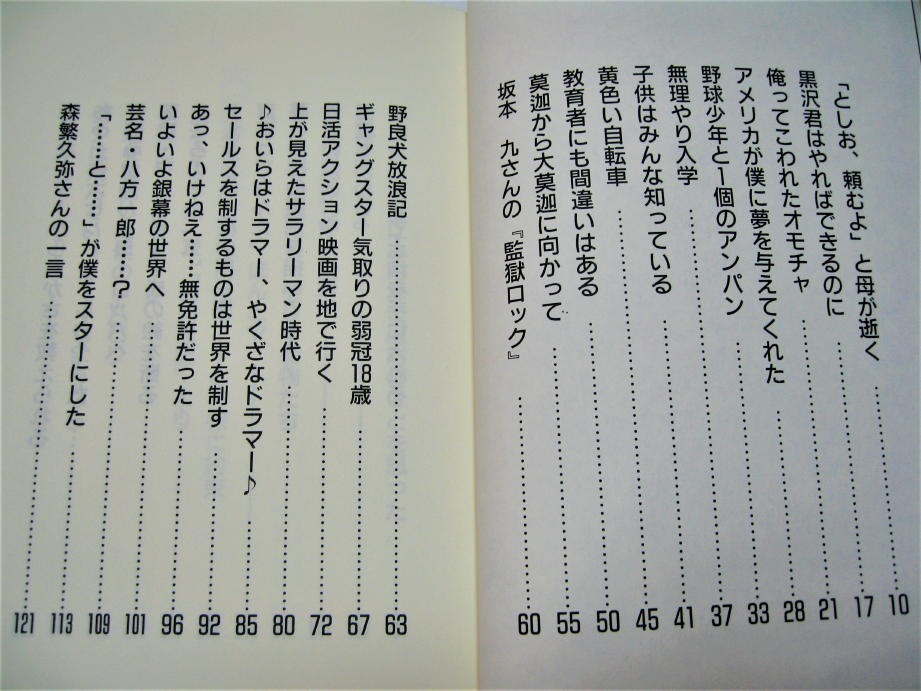 「としお、頼むよ」と母が逝く……10
黒沢君はやればできるのに……17
俺ってこわれたオモチャ……21
アメリカが僕に夢を与えてくれた……28
野球少年と1個のアンパン……33
無理やり入学……37
子供はみんな知っている……41
黄色い自転車……45
教育者にも間違いはある……50
莫迦から大莫迦に向かって……55
坂本 九さんの『監獄ロック』……60
野良犬放浪記……63
ギャングスター気取りの弱冠18歳……67
日活アクション映画を地で行く……72
上が見えたサラリーマン時代……80
♪おいらはドラマー、やくざなドラマー♪……85
セールスを制するものは世界を制す……92
あっ、いけねえ……無免許だった……96
いよいよ銀幕の世界へ……101
芸名・八方一郎……?……109
「……と……」が僕をスターにした……113
森繁久弥さんの一言……121